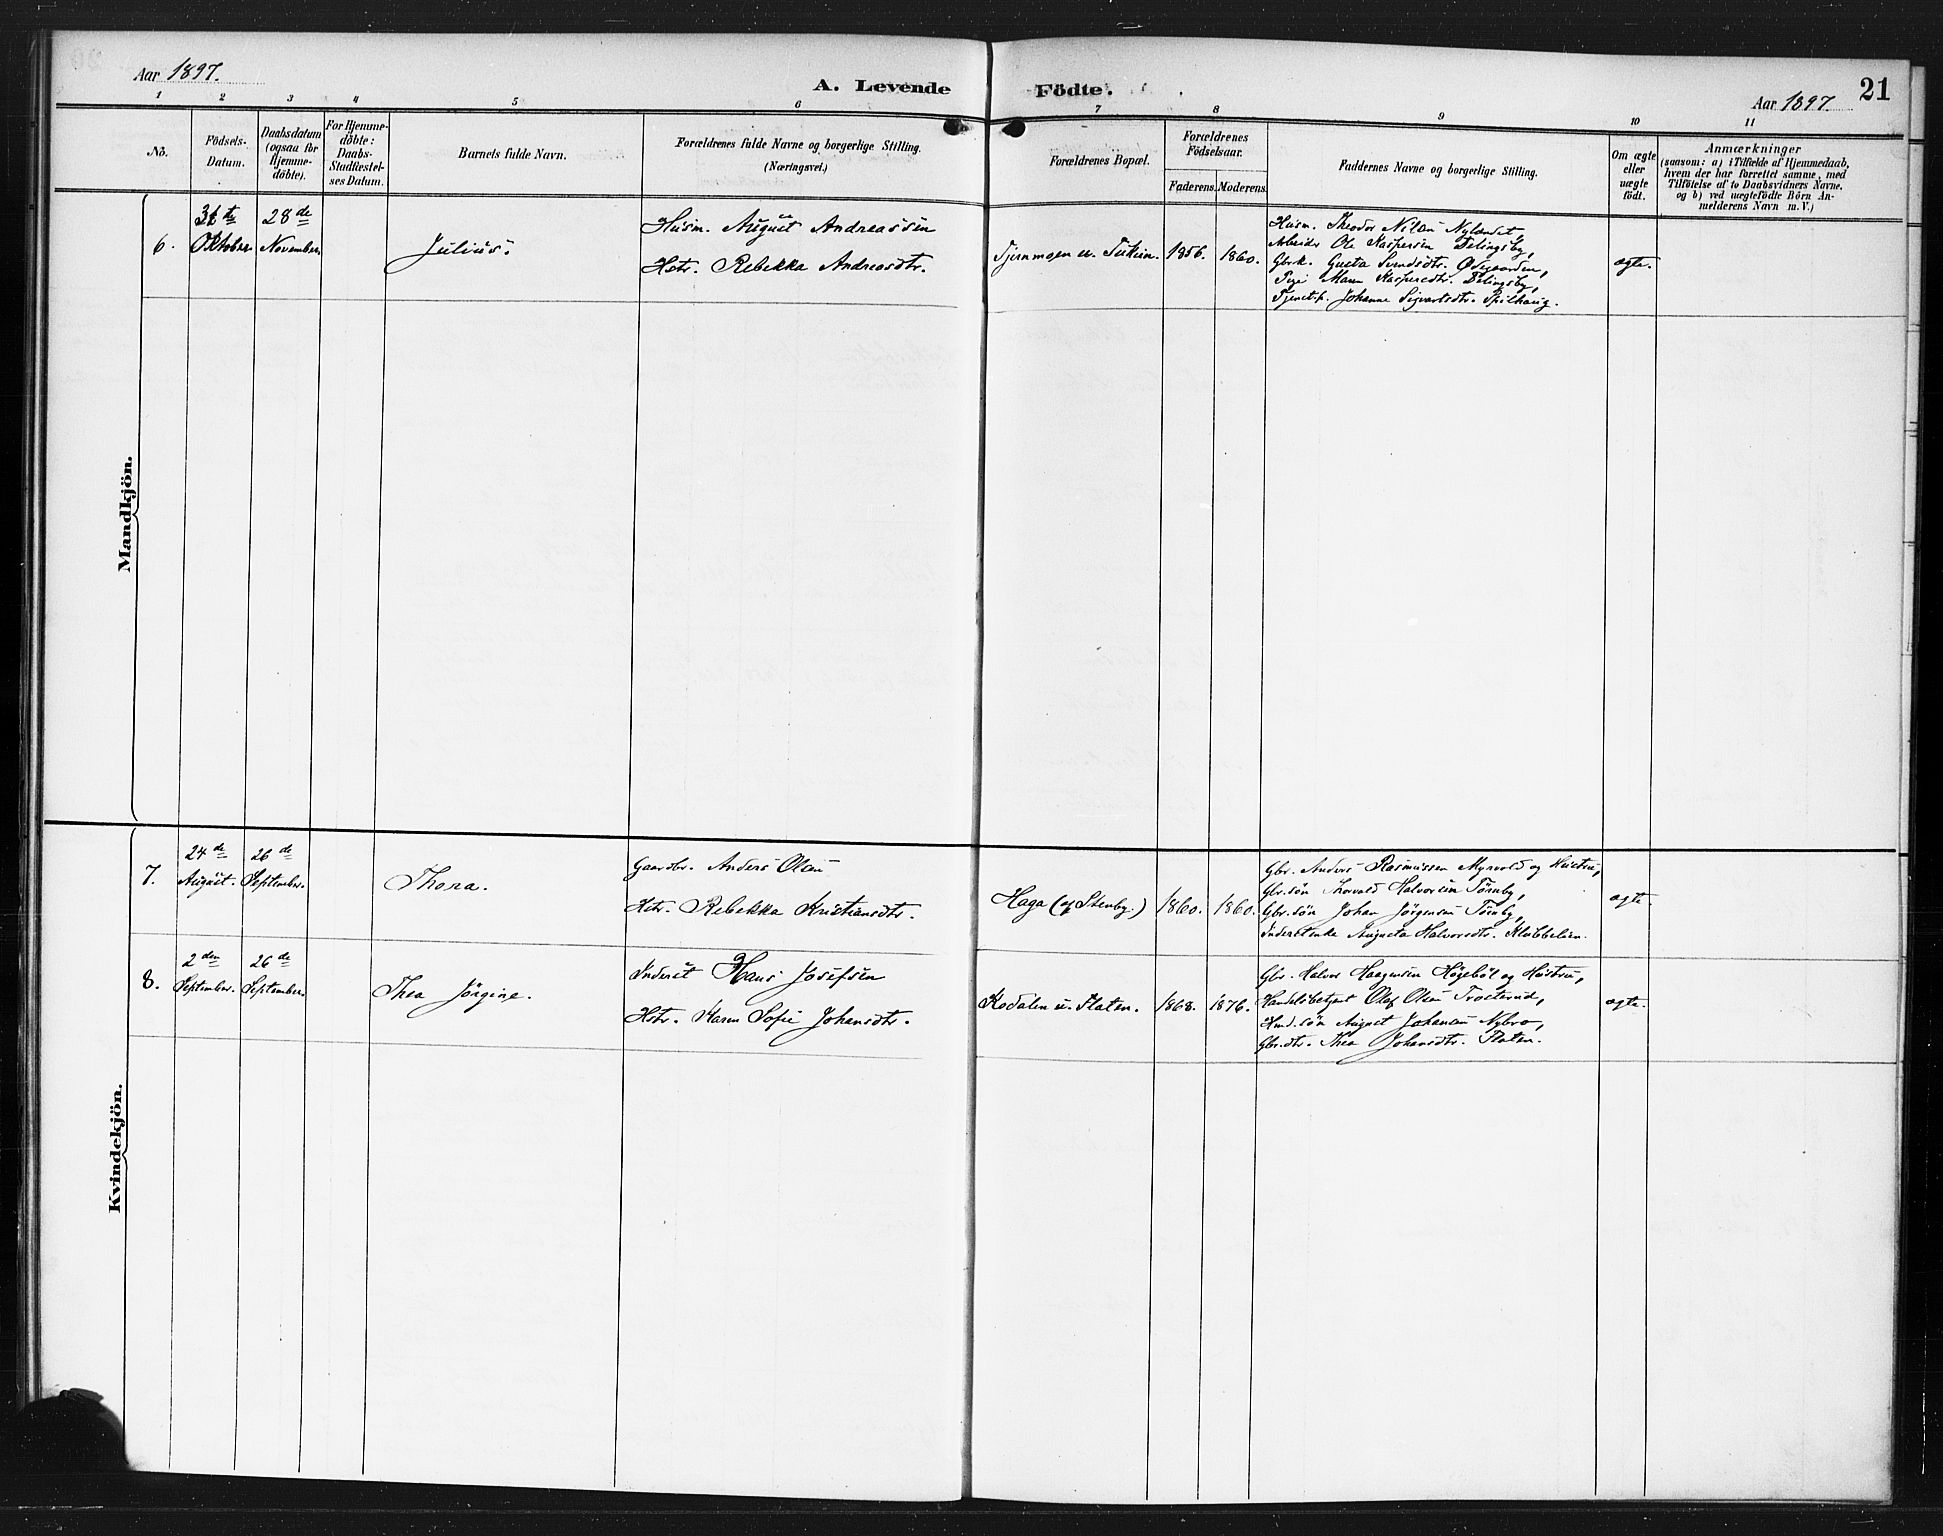 Aar 1897.
A. Levende Födte.
Aar 1897.
21
1 2 3 4 5 6 7 8 9 10 11
No.
Födsels-
Datum.
Daabsdatum
(ogsaa for
Hjemme-
döbte).
For Hjemme-
döbte:
Daabs-
Stadfæstel-
ses Datum.
Barnets fulde Navn.
Forældrenes fulde Navne og borgerlige Stilling.
(Næringsvei.)
Forældrenes Bopæl.
Forældrenes
Födselsaar.
Faderens.
Moderens.
Faddernes Navne og borgerlige Stilling.
Om ægte
eller
uægte
födt.
Anmærkninger
(saasom: a) i Tilfælde af Hjemmedaab,
hvem der har forrettet samme, med
Tilföielse af to Daabsvidners Navne,
og b) ved uægtefödte Börn An-
melderens Navn m. V.)
Mandkjön.
6.
Oktober
28de
November
Julius.
Husm. August Andreassen
Hstr. Rebekka Andreasdtr.
Tjernmoen u.
1856.
1860.
Husm. Theodor Nilsen Nylændet
Arbeider Ole Kaspersen Delingsby,
Gbrk. Gusta Svendsdtr. Ødegaarden,
Pige Maren Kaspersdtr. Delingsby,
Tjenestp. Johanne Sigvartsdtr. Spilhaug.
ægte.
Kvindekjön.
7.
24de
August.
26de
September.
Thora.
Gaardbr. Anders Olsen
Hstr. Rebekka Kristiansdtr.
Haga (af Stenby.)
1860.
1860.
Gbr. Anders Rasmussen Myrvold og Hustru,
Gbr.søn Thorvald Halvorsen Tørnby,
Gbr.søn Johan Jørgensen Tørnby,
Inderstenke Augusta Halvorsdtr. Klubbelien.
ægte.
8.
2den
September.
26de
September.
Thea Jørgine.
Inderst Hans Josefsen
Hstr. Karen Sofie Johansdtr.
Kodalen u. Flaten.
1868.
1876.
Gbr. Halvor Haagensen Høgebøl og Hustru,
Handelsbetjent Olaf Olsen Trosterud,
Husm.søn August Johansen Nybro,
Gbr.dtr. Thea Johansdtr. Flaten.
ægte.